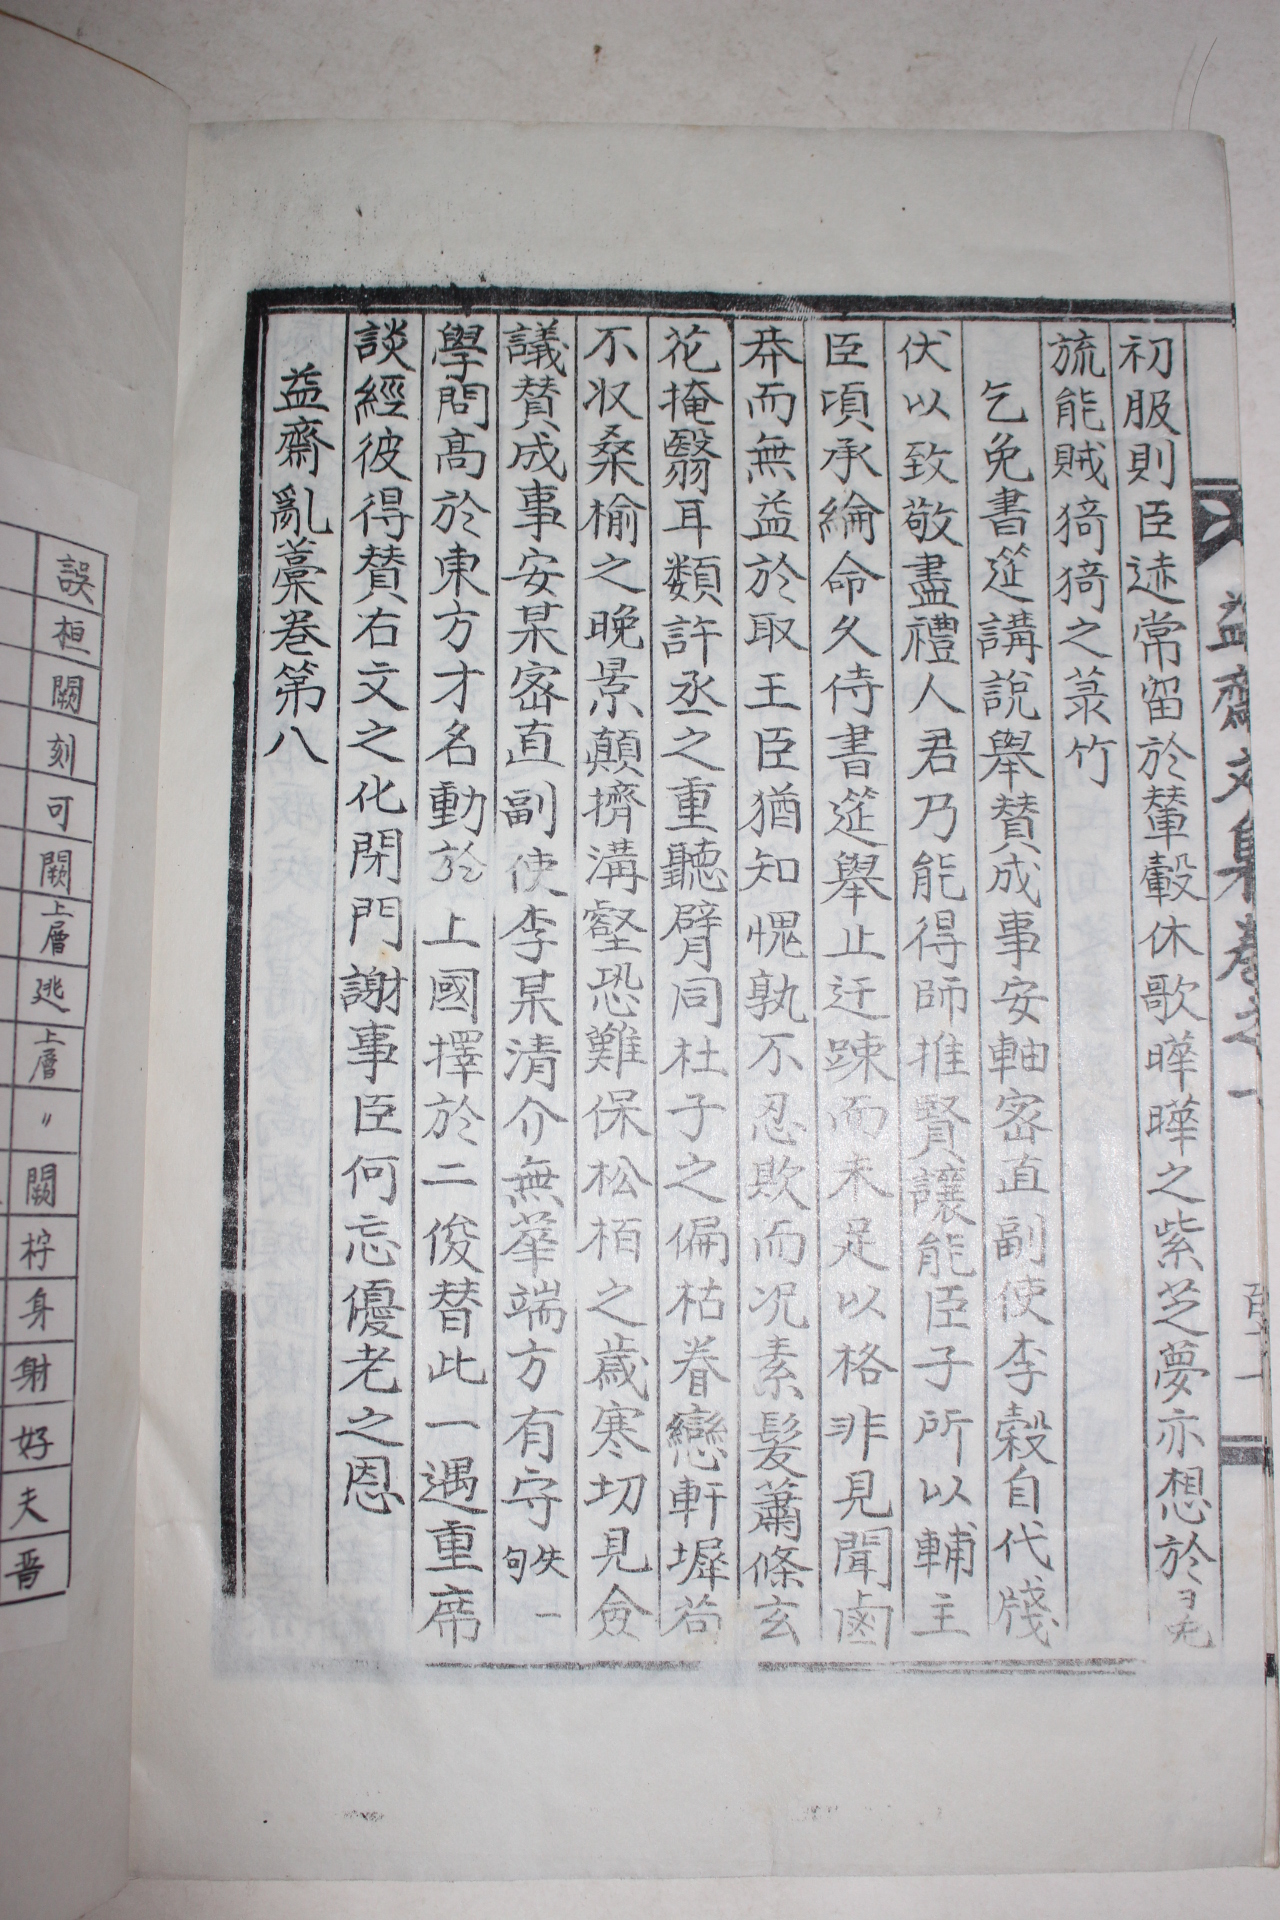 初服則臣迹常留於輦轂休歌曄曄之紫芝夢亦想於
旒能賊猗猗之菉竹
乞免書筵講說舉贊成事安軸密直副使李穀自代牋
伏以致敬盡禮人君乃能得師推賢讓能臣子所以輔主
臣頃承綸命久侍書筵舉止迂踈而未足以格非見聞鹵
莽而無益於取王臣猶知愧孰不忍欺而况素髮蕭條玄
花掩翳耳類許丞之重聽臂同杜子之偏枯眷戀軒墀苟
不収桑楡之晩景顛擠溝壑恐難保松栢之歲寒切見僉
議贊成事安某密直副使李某清介無華端方有守失一句
學問高於東方才名動於上國擇於二俊替此一遇重席
談經彼得贊右文之化閉門謝事臣何忘優老之恩
益齋亂藁卷第八
益齋文集卷之
誤
桓
闕
刻
可
闕
上層
逃
上層
〃
闕
柠
身
射
好
夫
晋